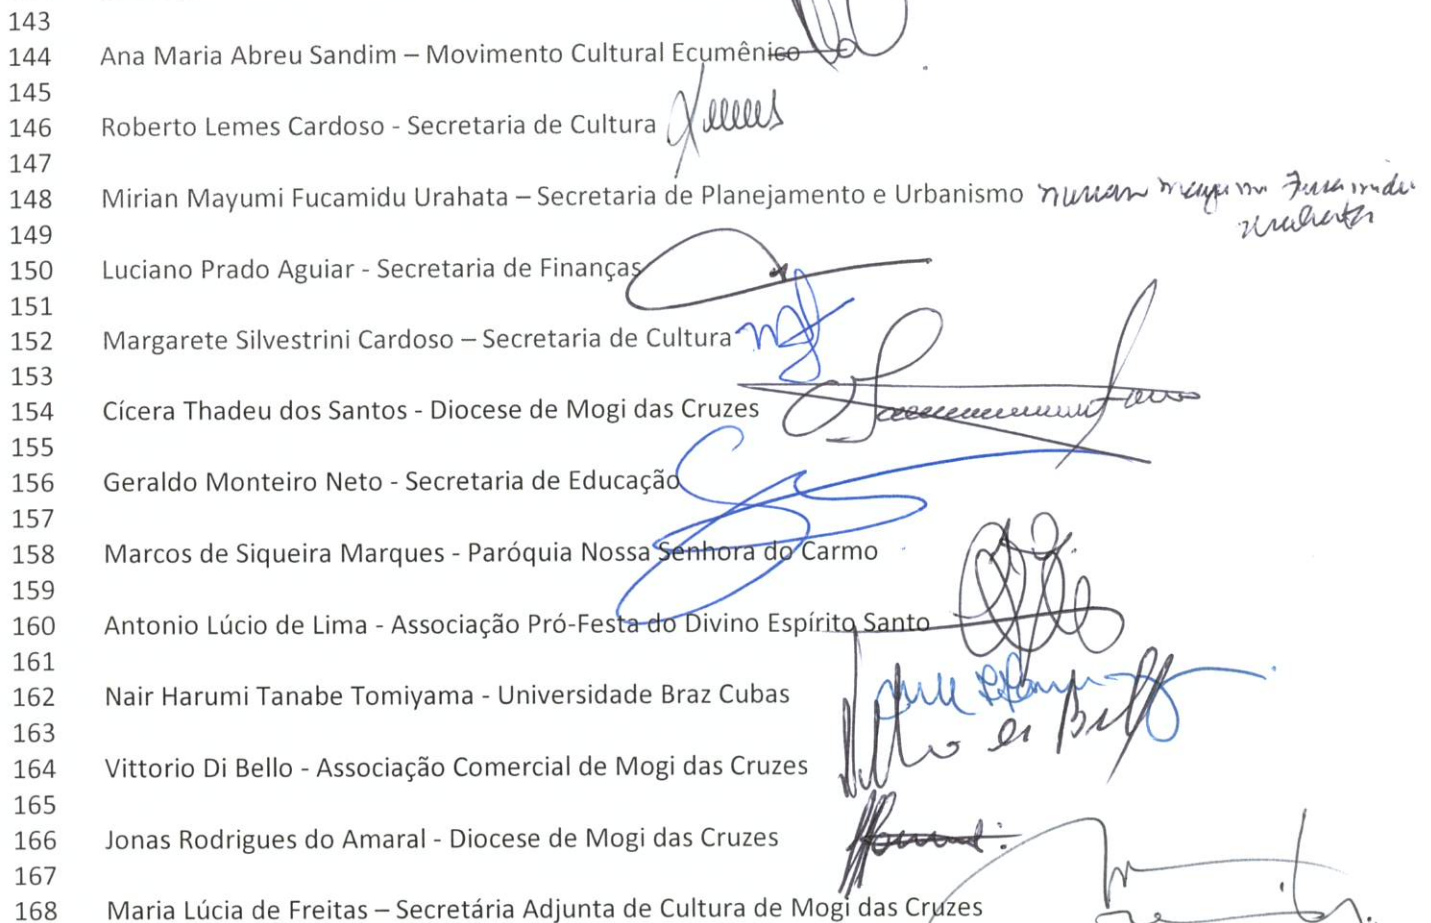 143
144 Ana Maria Abreu Sandim – Movimento Cultural Ecumênico
145
146 Roberto Lemes Cardoso - Secretaria de Cultura
147
148 Mirian Mayumi Fucamidu Urahata – Secretaria de Planejamento e Urbanismo
149
150 Luciano Prado Aguiar - Secretaria de Finanças
151
152 Margarete Silvestrini Cardoso – Secretaria de Cultura
153
154 Cícera Thadeu dos Santos - Diocese de Mogi das Cruzes
155
156 Geraldo Monteiro Neto - Secretaria de Educação
157
158 Marcos de Siqueira Marques - Paróquia Nossa Senhora do Carmo
159
160 Antonio Lúcio de Lima - Associação Pró-Festa do Divino Espírito Santo
161
162 Nair Harumi Tanabe Tomiyama - Universidade Braz Cubas
163
164 Vittorio Di Bello - Associação Comercial de Mogi das Cruzes
165
166 Jonas Rodrigues do Amaral - Diocese de Mogi das Cruzes
167
168 Maria Lúcia de Freitas – Secretária Adjunta de Cultura de Mogi das Cruzes